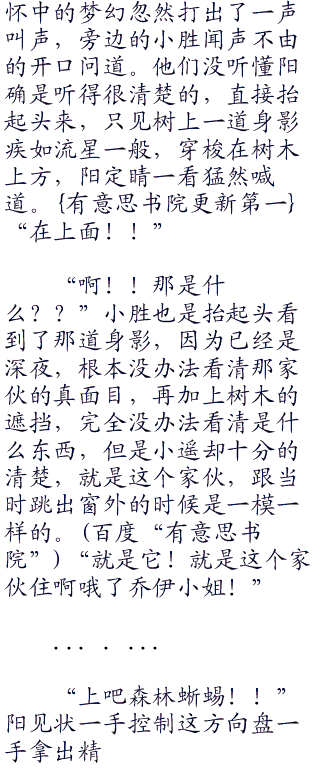 怀中的梦幻忽然打出了一声
叫声，旁边的小胜闻声不由
的开口问道。他们没听懂阳
确是听得很清楚的，直接抬
起头来，只见树上一道身影
疾如流星一般，穿梭在树木
上方，阳定晴一看猛然喊
道。{有意思书院更新第一}
“在上面！！”
“啊！！那是什
么？？”小胜也是抬起头看
到了那道身影，因为已经是
深夜，根本没办法看清那家
伙的真面目，再加上树木的
遮挡，完全没办法看清是什
么东西，但是小遥却十分的
清楚，就是这个家伙，跟当
时跳出窗外的时候是一模一
样的。(百度“有意思书
院”)“就是它！就是这个家
伙住啊哦了乔伊小姐！”
... . ...
“上吧森林蜥蜴！！”
阳见状一手控制这方向盘一
手拿出精